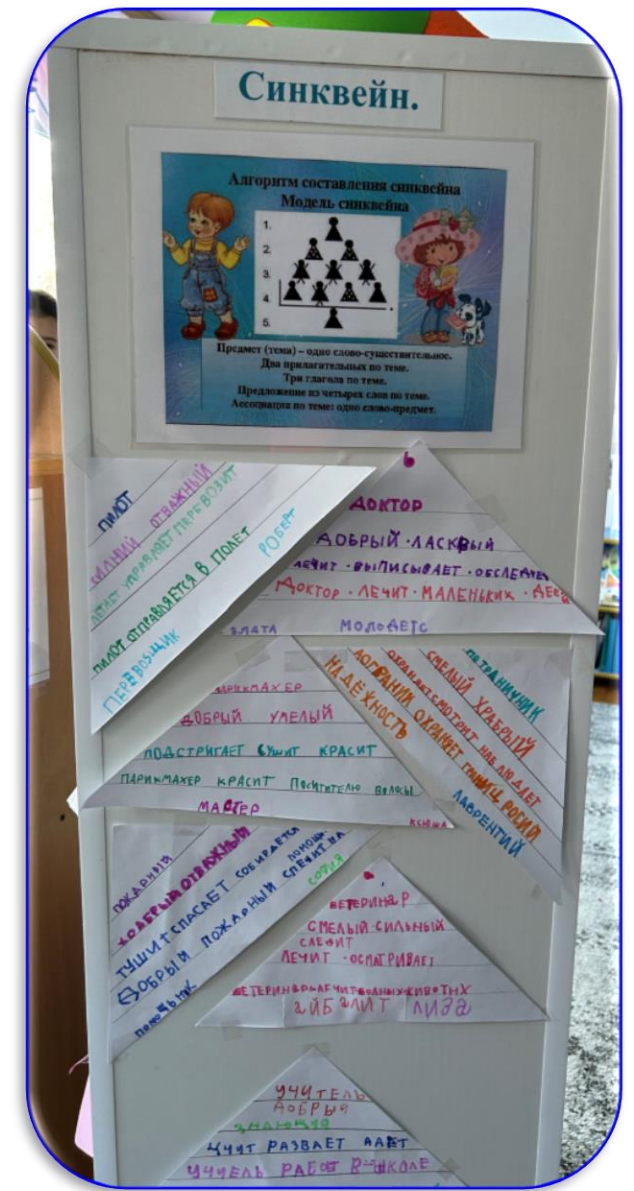 Синквейн.
Алгоритм составления синквейна
Модель синквейна
1.
2.
3.
4.
5.
Предмет (тема) – одно слово-существительное.
Два прилагательных по теме.
Три глагола по теме.
Предложение из четырех слов по теме.
Ассоциация по теме: одно слово-предмет.
ПИЛОТ
СИЛНИЙ ОТВАЖНЫЙ
ЛЕТАЕТ УПРАВЛЯЕТ ПЕРЕВОЗИТ
ПИЛОТ ОТПРАВЛЯЕТСЯ В ПОЛЕТ
ПЕРЕВОЗЩИК
РОБЕРТ
ДОКТОР
ДОБРЫЙ · ЛАСКВЫЙ
ЛЕЧИТ · ВЫПИСЫВАЕТ · ОБСЛЕДУЕ
ДОКТОР · ЛЕЧИТ · МАЛЕНЬКИХ ·
ЗЛАТА МОЛОДЕТС
ПАРИКМАХЕР
ДОБРЫЙ УМЕЛЫЙ
ПОДСТРИГАЕТ СУШИТ КРАСИТ
ПАРИКМАХЕР КРАСИТ ВОЛОСЫ
МАСТЕР
КСЮША
СМЕЛЫЙ ХРАБРЫЙ
ОХРАНЯЕТ СМОТРИТ НАБЛЮДАЕТ
ОХРАНЯЕТ ГРАНИЦ
НАДЕЖНОСТЬ
ЛАВРЕНТИЙ
ПОЖАРНЫЙ
ТУШИТ СПАСАЕТ СОБИРАЕТСЯ
ДОБРЫЙ ПОЖАРНЫЙ СПЕШИТ НА
ПОМОЩНИК
СОФИЯ
ВЕТЕРИНАР
СМЕЛЫЙ · СИЛЬНЫЙ
ЛЕЧИТ · ОСМАТРИВАЕТ
АЙБАЛИТ ЛИЗА
УЧИТЕЛЬ
ДОБРЫЯ
УЧИТ РАЗВАЕТ
В ШКОЛЕ